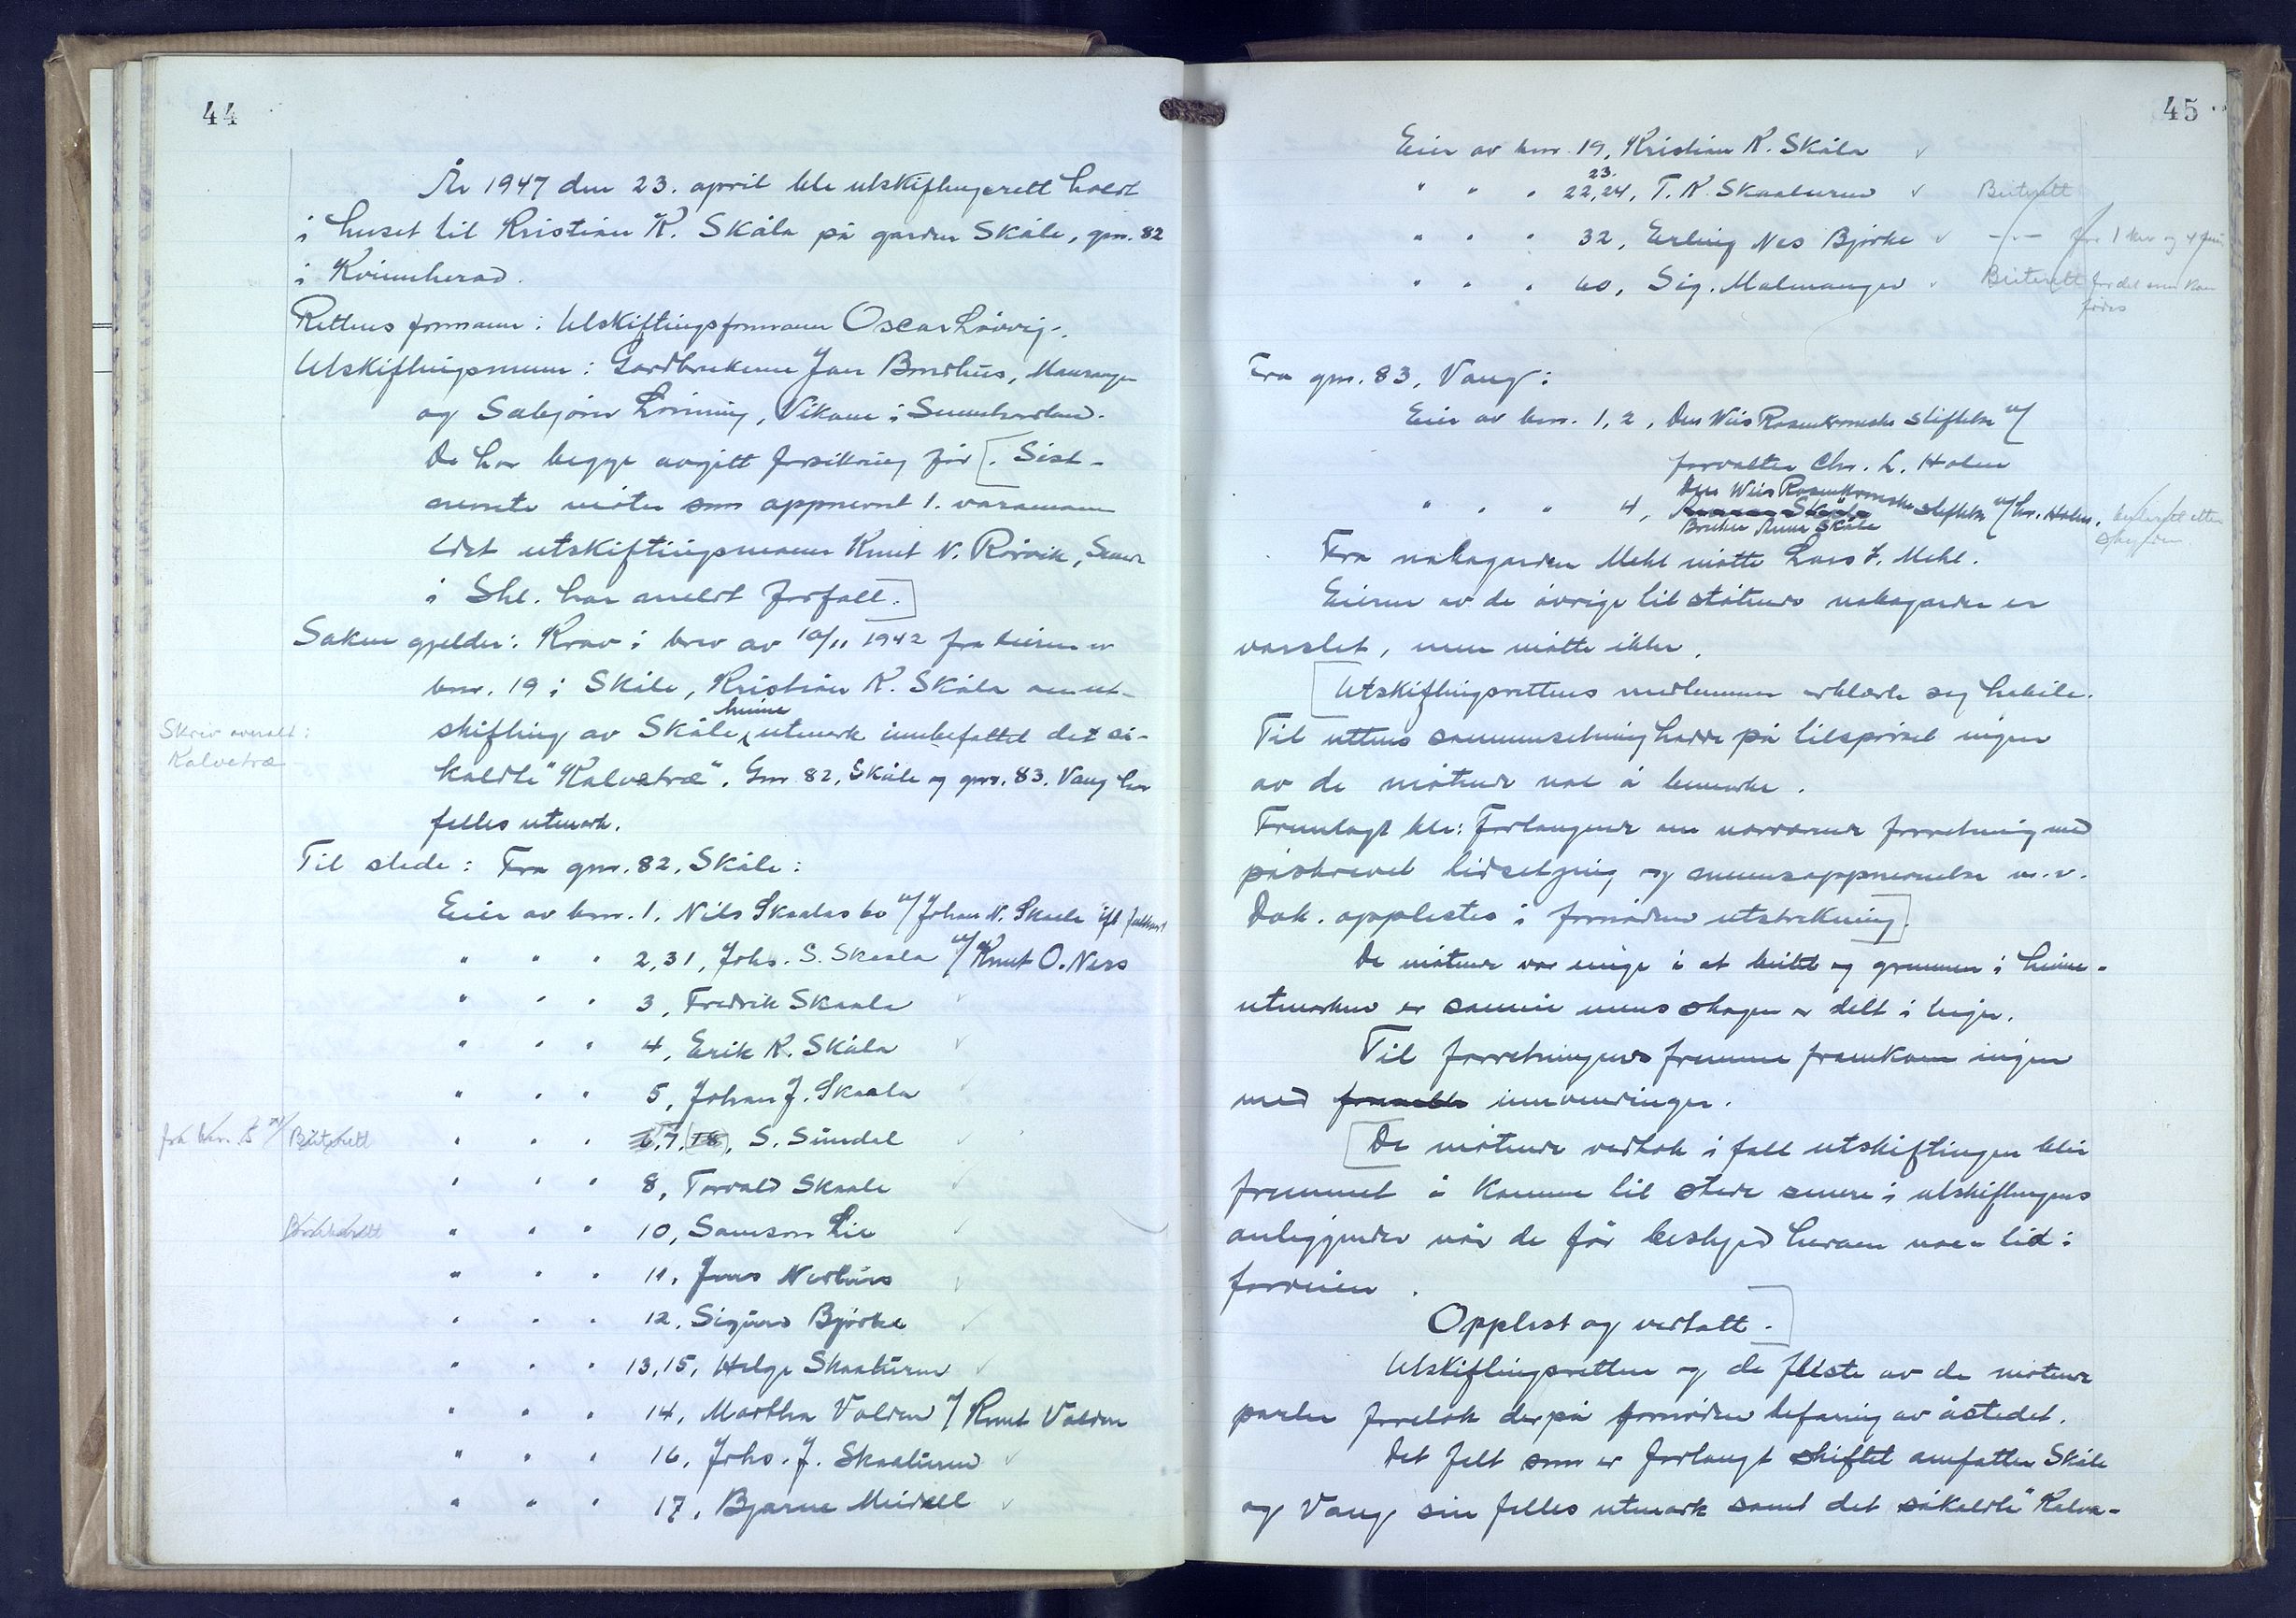 44
År 1947 den 23. april ble utskiftingsrett holdt
i huset til Kristian K. Skåla på garden Skåle, gnr. 82
i Kvinnherad.
Rettens formann: Utskiftingsformann Oscar Løvvig.
Utskiftingsmenn: Gardbrukerne Jan Bondhus, Mauranger
og Sæbjørn Lønning, Vikane i Sunnhordland.
De har begge avgitt forsikring før. Sist-
nevnte møter som oppnevnt 1. varamann
idet utskiftingsmann Knut N. Rørvik,
i Shl. har meldt forfall.
Saken gjelder: Krav i brev av 10/11 1942 fra eieren av
bnr. 19 i Skåle, Kristian K. Skåla om ut-
heime
skifting av Skåle utmark innbefattet det så-
Skriv overalt:
Kalvetræ
kaldte "Kalvetræ". Gnr. 82, Skåle og gnr. 83. Vang har
felles utmark.
Til stede: Fra gnr. 82. Skåle:
Eier av bnr. 1, Nils Skaalas bo v/ Johan N. Skaale ifl. fullmakt
" " " 2,31, Johs. S. Skaala v/ Knut O. Nes
" " " 3, Fredrik Skaale
" " " 4, Erik K. Skåla
" " " 5, Johan J. Skaala
Beiterett " " " 6,7,18, S. Sundal
" " " 8, Torvald Skaale
" " " 10, Samson Lie
" " " 11, Jens Nerhus
" " " 12, Sigurd Bjørke
" " " 13,15, Helge Skaaluren
" " " 14, Martha Valen v/ Knut Valen
" " " 16, Johs. J. Skaaluren
" " " 17, Bjarne Meidell
45
Eier av bnr. 19, Kristian K. Skåla
23.
" " " 22,24, T. K. Skaaluren Beiterett
" " " 32, Erling Nes Bjørke -"- for 1 ku og 4
" " " 60, Sig. Malmanger Beiterett for det som kan
fødes
Fra gnr. 83, Vang:
Eier av bnr. 1, 2, Den Weis Rosenkroneske stiftelse v/
forvalter Chr. L. Holm
" " " 4, Den Weis Rosenkroneske stiftelse v/ Chr. Holm. beiterett etter
Bruker Anna Skåle
skylden.
Fra nabogarden Mehl møtte Lars J. Mehl.
Eierne av de øvrige tilstøtende nabogarder er
varslet, men møtte ikke.
Utskiftingsrettens medlemmer erklærte seg habile.
Til rettens sammensetning hadde på tilspørsel ingen
av de møtende noe å bemerke.
Fremlagt ble: Forlangende om nærværende forretning med
påskrevet tidsetjing og mennsoppnevnelse m.v.
Dok. opplestes i fornøden utstrekning.
De møtende var enige i at beitet og grunnen i heime-
utmarken er sameie mens skogen er delt i teiger.
Til forretningens fremme framkom ingen
med formelle innvendinger.
De møtende vedtok i fall utskiftingen blir
fremmet å komme til stede senere i utskiftingens
anliggender når de får beskjed herom noen tid i
forveien.
Opplest og vedtatt.
Utskiftingsretten og de fleste av de møtende
parter foretok derpå fornøden befaring av åstedet.
Det felt som er forlangt skiftet omfatter Skåle
og Vang sin felles utmark samt det såkaldte "Kalve-